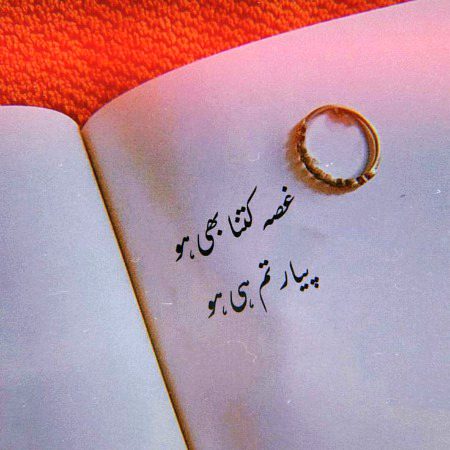 غصہ کتنا بھی ہو
پیار تم ہی ہو